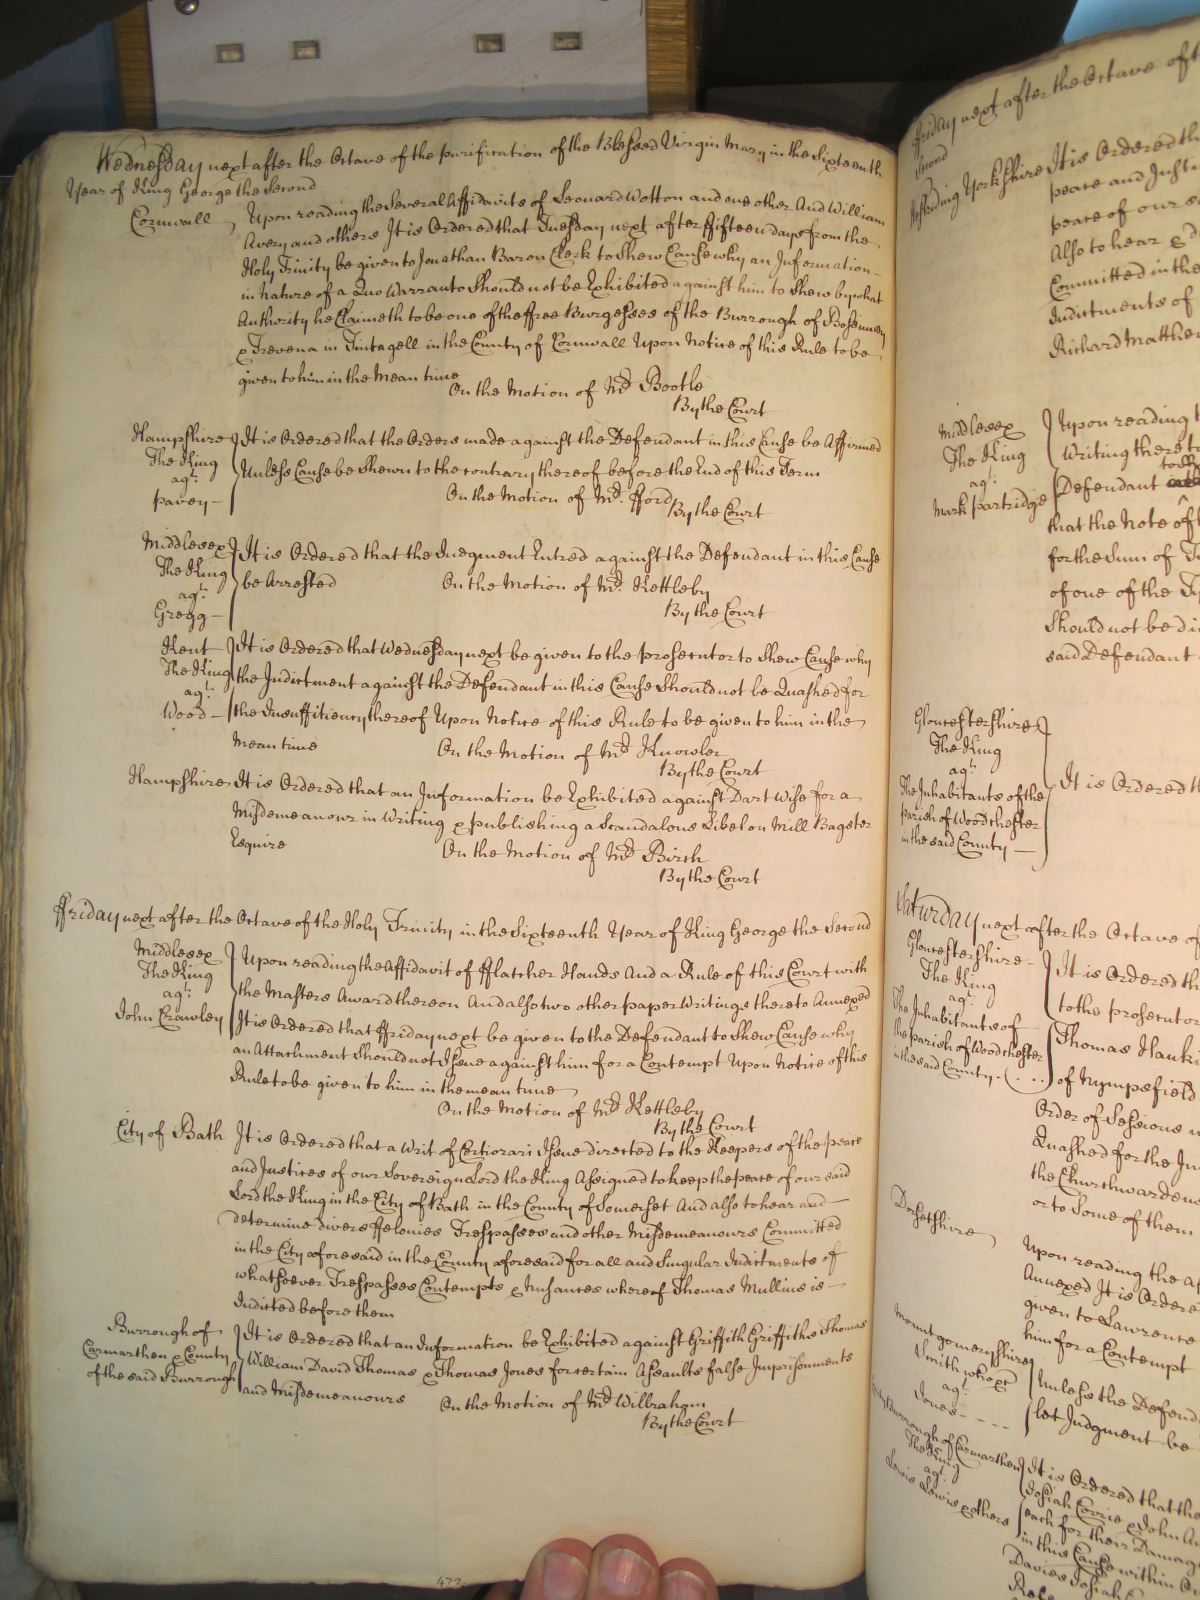 Wednesday next after the Octave of the purification of the Blessed Virgin Mary in the Sixteenth
Year of King George the Second
Cornwall
Upon reading the Several Affidavits of Leonard Wotton and one other And William
Avery and others It is Ordered that Tuesday next after ffifteen days from the
Holy Trinity be given to Jonathan Baron Clerk to Shew Cause why an Information
in Nature of a Quo Warranto Should not be Exhibited against him to Shew by what
Authority he Claimeth to be one of the ffree Burgesses of the Burrough of Bossinney
& Trevena in Tintagell in the County of Cornwall Upon Notice of this Rule to be
given to him in the Mean time
On the Motion of Mr Bootle
By the Court
Hampshire
The King
agt.
Pavey
It is Ordered that the Orders made against the Defendant in this Cause be Affirmed
Unless Cause be Shewn to the contrary thereof before the End of this Term
On the Motion of Mr. fford
By the Court
Middlesex
The King
agt.
Gregg
It is Ordered that the Judgment Entred against the Defendant in this Cause
be Arrested
On the Motion of Mr. Kettleby
By the Court
Kent
The King
agt.
Wood
It is Ordered that Wednesday next be given to the prosecutor to Shew Cause why
the Indictment against the Defendant in this Cause Should not be Quashed for
the Insuffitiency thereof Upon Notice of this Rule to be given to him in the
Mean time
On the Motion of Mr Knowler
By the Court
Hampshire
It is Ordered that an Information be Exhibited against Dart Wise for a
Misdemeanour in Writing & publishing a Scandalous Libel on Mill Bagster
Esquire
On the Motion of Mr Birch
By the Court
ffriday next after the Octave of the Holy Trinity in the Sixteenth Year of King George the Second
Middlesex
The King
agt.
John Crawley
Upon reading the Affidavit of fflatcher Hands And a Rule of this Court with
the Masters Award thereon And also two other paper Writings thereto Annexed
It is Ordered that ffriday next be given to the Defendant to Shew Cause why
an Attachment Should not Issue against him for a Contempt Upon Notice of this
Rule to be given to him in the mean time
On the Motion of Mr Kettleby
By the Court
City of Bath
It is Ordered that a Writ of Certiorari Issue directed to the Keepers of the peace
and Justices of our Sovereign Lord the King Assigned to keep the peace of our said
Lord the King in the City of Bath in the County of Somerset And also to hear and
determine divers ffelonies Trespasses and other Misdemeanours Committed
in the City aforesaid in the County aforesaid for all and Singular Indictments of
whatsoever Trespasses Contempts & Nusances whereof Thomas Mullins is
Indicted before them
Burrough of
Carmarthen & County
of the said Burrough
It is Ordered that an Information be Exhibited against Griffith Griffiths Thomas
William David Thomas & Thomas Jones for certain Assaults false Imprisonments
and Misdemeanours
On the Motion of Mr Wilbraham
By the Court
472
ffriday next after the Octave of
Second
Yorkshire
It is Ordered th
peace and Justi
peace of our s
Also to hear &
Committed in the
Indictments of
Richard Matthe
Middlesex
The King
agt.
Mark partridge
Upon reading
Writing thereto
Defendant
that the Note of
for the Sum of
of one of the
Should not be di
said Defendant
Gloucestershire
The King
agt.
The Inhabitants of the
parish of Woodchester
in the said County
It is Ordered th
Saturday next after the Octave of
Gloucestershire
The King
agt.
The Inhabitants of
the parish of Woodchester
in the said County
It is Ordered th
to the prosecutor
Thomas Hanki
of Nympsfield
Order of Sessions
Quashed for the In
the Churchwardens
or to Some of them
Dorsetshire
Upon reading the
Annexed It is Ordere
given to Lawrence
him for a Contempt
Mountgomeryshire
Smith
agt.
Jones
Unless the Defend
let Judgment be
Burrough of Carmarthen
The King
agt.
Lewis Lewis & others
It is Ordered that the
Josiah Corrie & John
each for their Damag
in this Cause within
Davies Josiah
Rule